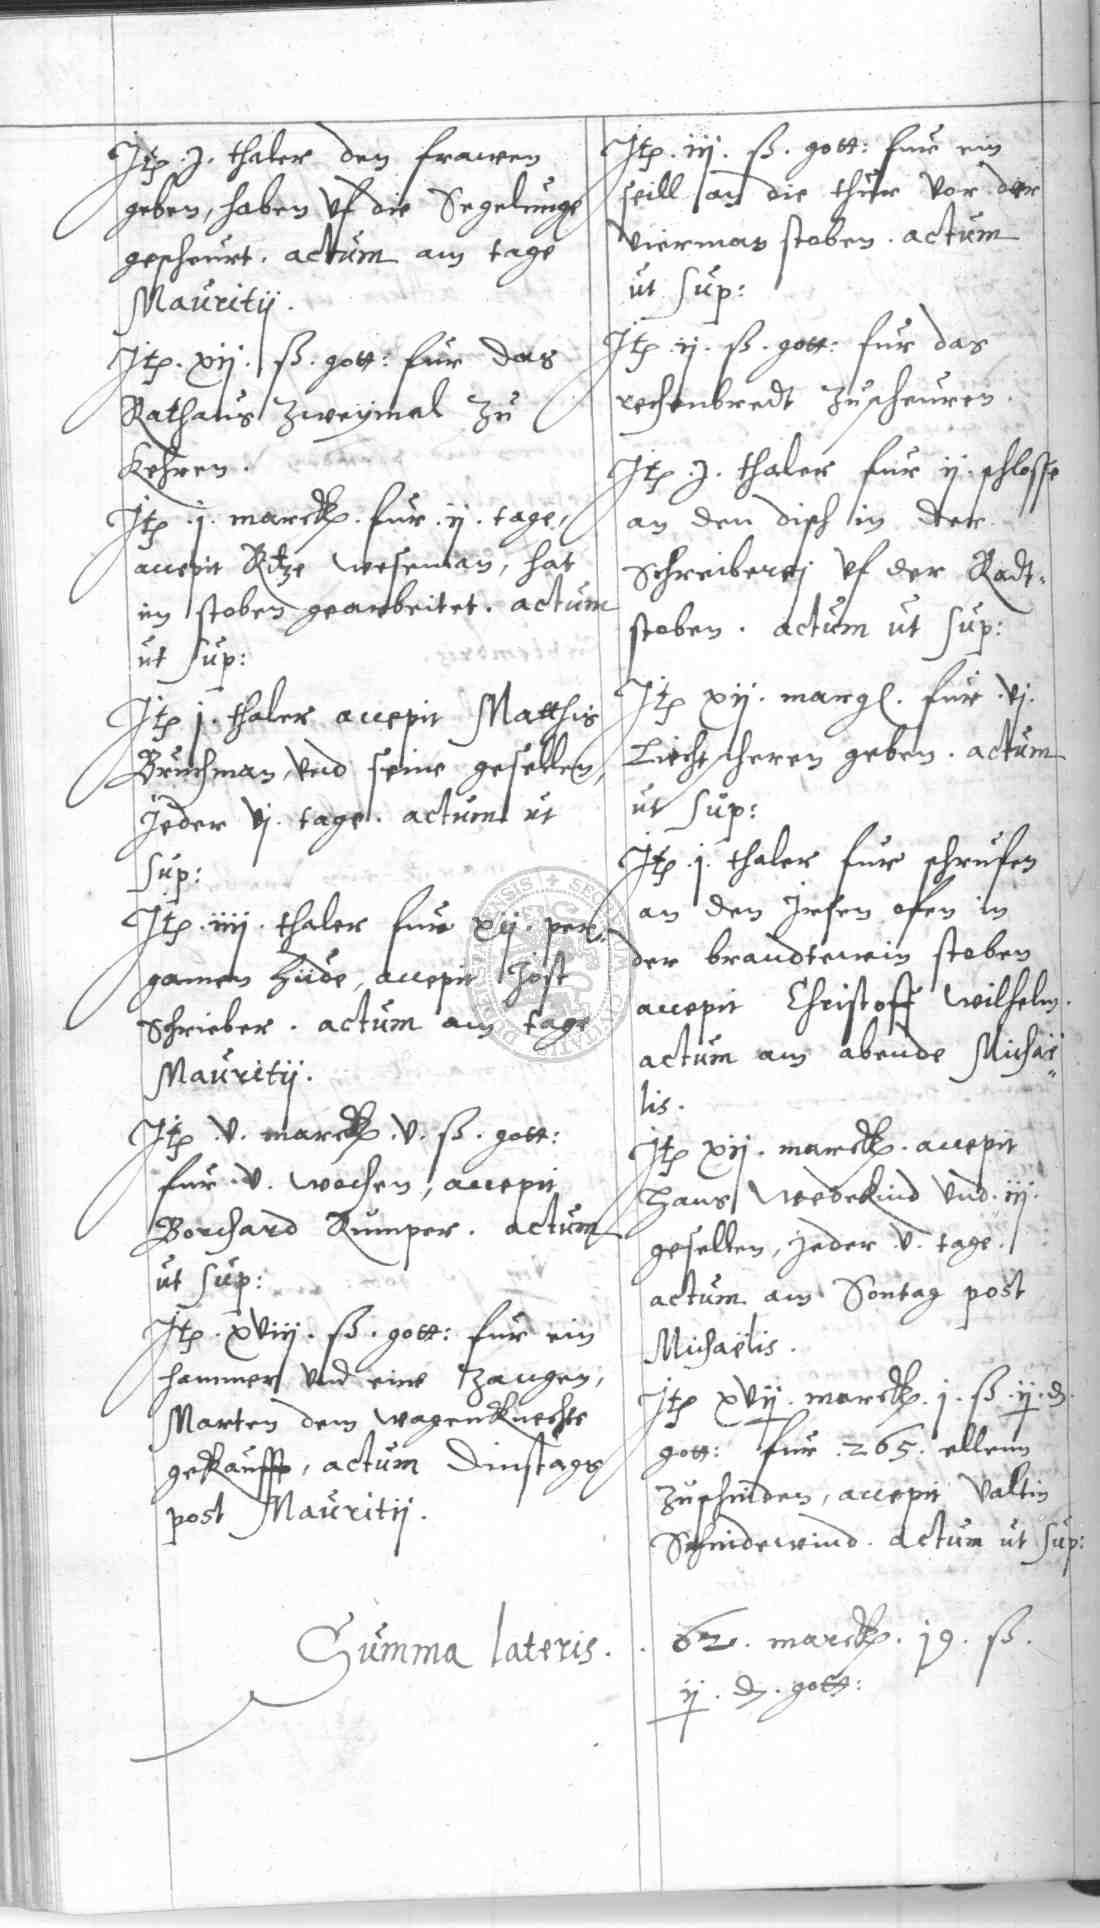 Itp. j. thaler den frawen
geben, haben vf die Segelunge
gescheurt. actum am tage
Mauritij.
Itp. xij. ß. gott: fur das
Rathaus Zweymal zu
kehren.
Itp. j. marck. fur .ij. tage,
accepit Ritze weseman, hat
im stoben gearbeitet. actum
ut sup:
Itp j. thaler accepit Matthis
Bruchman, vnd seine gesellen,
Jeder vj. tage. actum ut
sup:
Itp. iiij. thaler fur xij. per,
gamen hüde, accepit Jost
Schrieber. actum am tage
Mauritij.
Itp .v. marck .v. ß. gott:
fur .v. wochen, accepit
Borchard Rumper. actum
ut sup:
Itp. xviij. ß. gott: fur ein
hammer vnd eine Zangen,
Marten dem wagenknechte
gekaufft, actum Dinstags
post Mauritij.
Itp. iij. ß. gott: fur ein
seill an die thur vor der
vierman stoben. actum
ut sup:
Itp. ij. ß. gott: fur das
rechenbredt zuscheuren.
Itp j. thaler fur ij. schlosse
an den disch in der
Schreiberej vf der Radt=
stoben. actum ut sup:
Itp xij. margl. fur .vj.
Liechtscheren geben. actum
ut sup:
Itp .j. thaler fur schrufen
an den Jsern ofen in
der brandtewin stoben
accepit Christoff Wilhelm.
actum am abende Michaë=
lis.
Itp xij. marck. accepit
Hans Wedekind vnd .iij.
gesellen, jeder .v. tage.
actum am Sontag post
Michaëlis.
Itp xvij. marck. j. ß. ij. d.
gott: fur .265. ellenn
zuschniden, accepit Valtin
Schnidewind. actum ut sup:
Summa lateris. . 62. marck. 19. ß.
ij. d. gott: